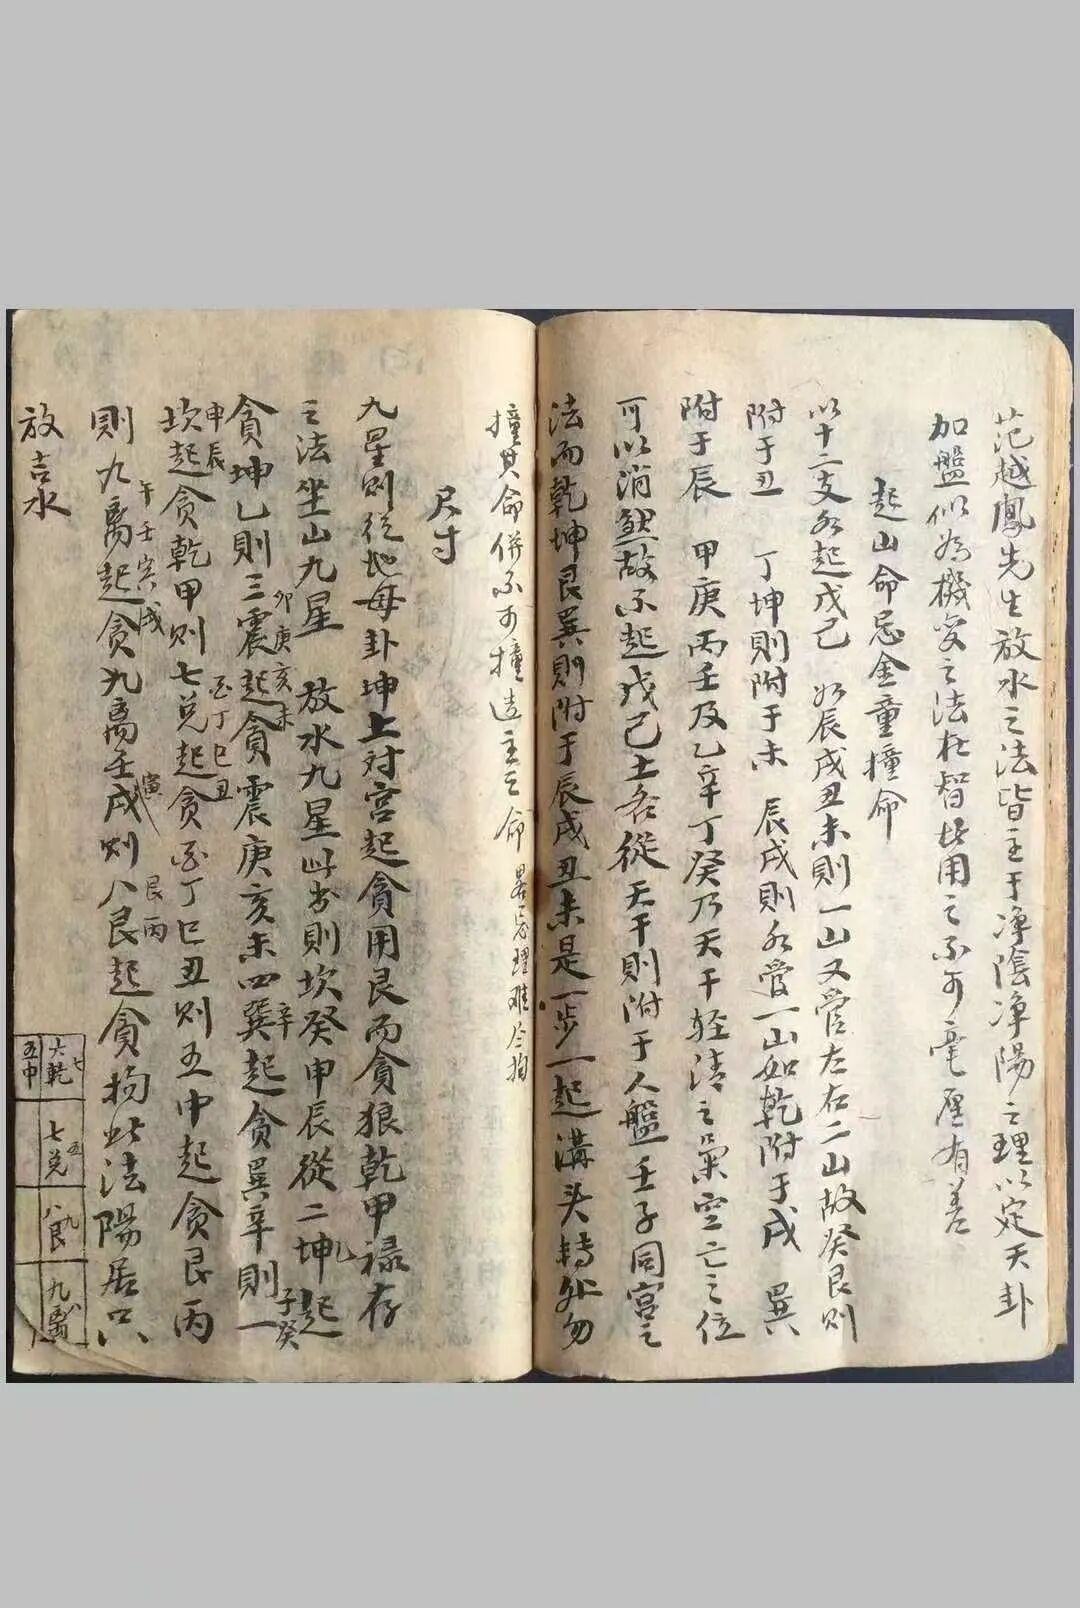 范越鳳先生放水之法皆主于净陰净陽之理以定天卦
加盤似為機变之法杜智皆用之不可毫厘有差
起山命忌金童撞命
以十二支必起戊己 如辰戌丑未則一山又管左右二山故癸艮則
附于丑 丁坤則附于未 辰戌則必管一山如乾附于戌 巽
附于辰 甲庚丙壬及乙辛丁癸乃天干轻清之氣空亡之位
可以消然故不起戊己土各從天干則附于人盤壬子同宫之
法而乾坤艮巽則附于辰戌丑未是一步一起溝头轉外勿
撞其命併不可撞造主之命
尺寸
九星則從地母卦坤上对宫起貪用艮而貪狼乾甲禄存
之法坐山九星 放水九星此方則坎癸申辰從二坤起
貪坤乙則三震起貪震庚亥未四巽起貪巽辛則一
卯庚亥未
辛
子癸
坎起貪乾甲則七兑起貪酉丁巳丑則五中起貪艮丙
申辰
酉丁巳丑
則九离起貪九离壬戌則八艮起貪拘此法陽居六
午壬寅戌
寅
艮丙
放吉水
七 六乾
五中
五 七兑
九 八艮
八 九离